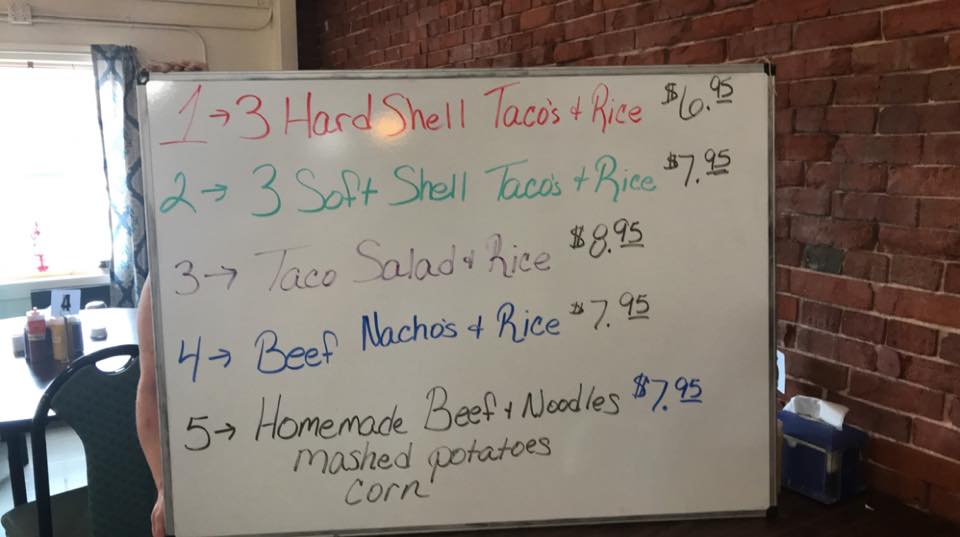 1→3 Hard Shell Taco's + Rice $6.95
2→ 3 Soft Shell Taco's + Rice $7.95
3→ Taco Salad + Rice $8.95
4→ Beef Nacho's + Rice $7.95
5→ Homemade Beef + Noodles $7.95
mashed potatoes
corn
4